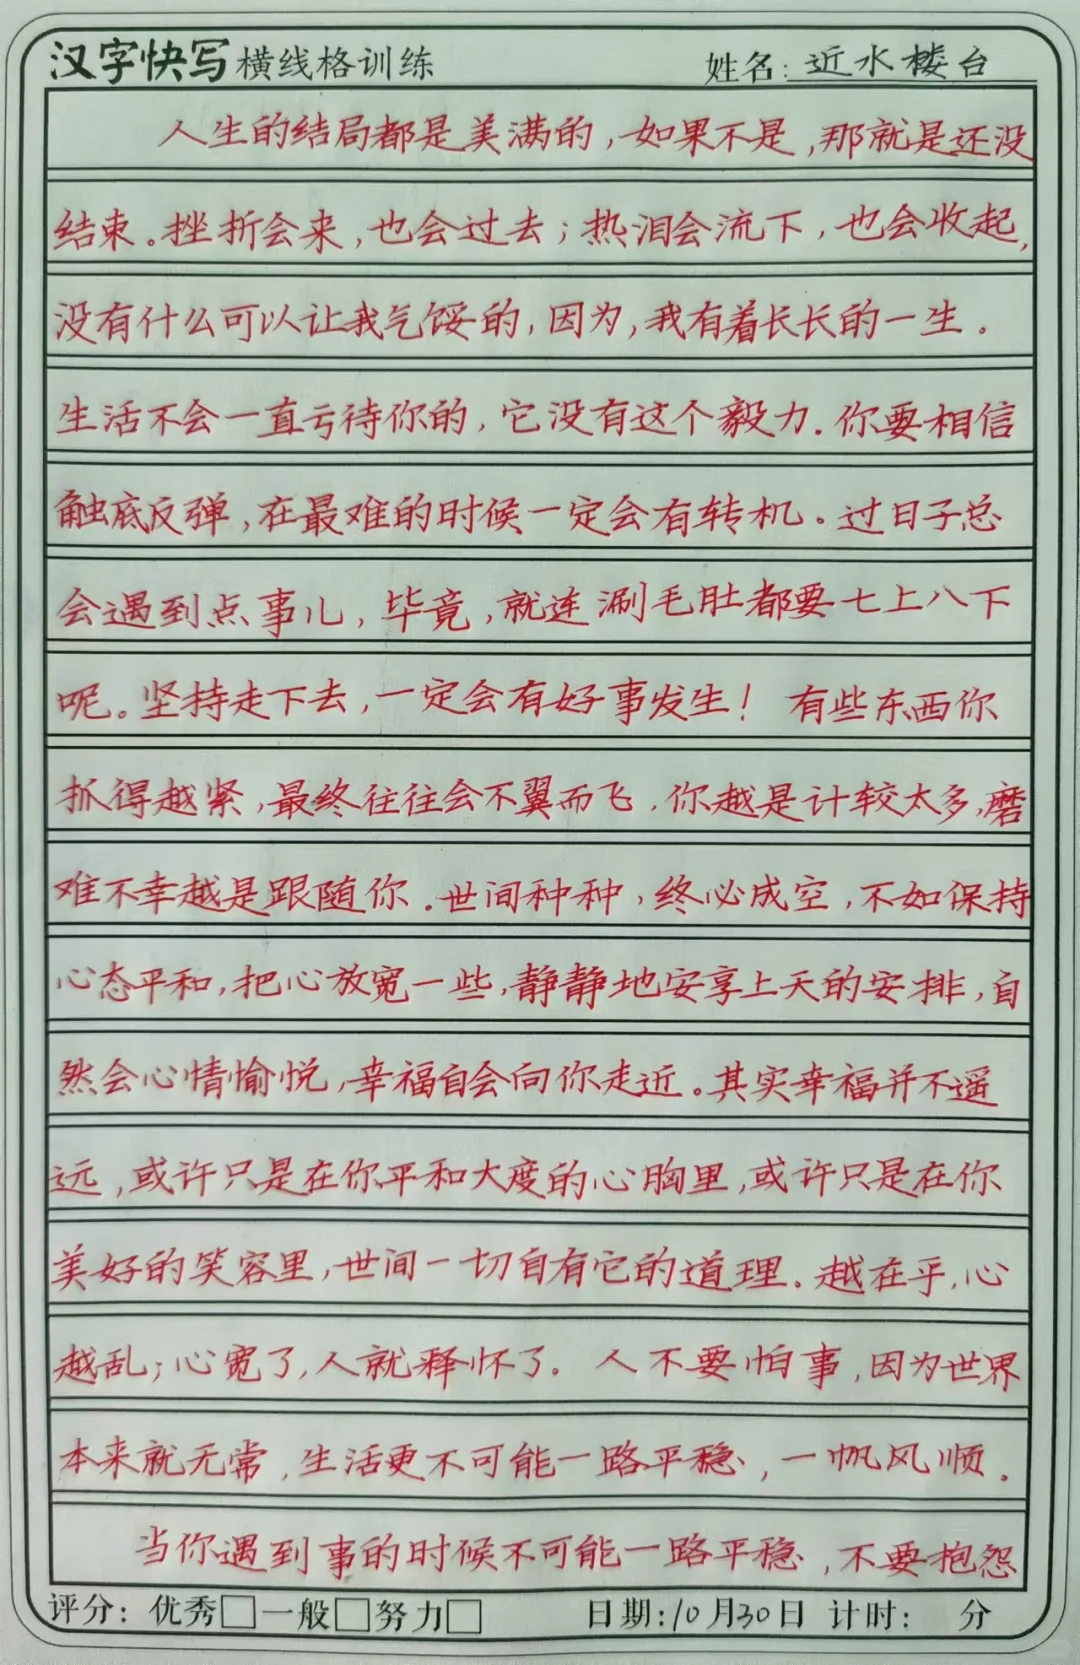 汉字快写横线格训练 姓名:近水楼台
人生的结局都是美满的,如果不是,那就是还没
结束。挫折会来,也会过去;热泪会流下,也会收起,
没有什么可以让我气馁的,因为,我有着长长的一生。
生活不会一直亏待你的,它没有这个毅力.你要相信
触底反弹,在最难的时候一定会有转机。过日子总
会遇到点事儿,毕竟,就连涮毛肚都要七上八下
呢。坚持走下去,一定会有好事发生! 有些东西你
抓得越紧,最终往往会不翼而飞.你越是计较太多,磨
难不幸越是跟随你.世间种种,终必成空,不如保持
心态平和,把心放宽一些,静静地安享上天的安排,自
然会心情愉悦,幸福自会向你走近。其实幸福并不遥
远,或许只是在你平和大度的心胸里,或许只是在你
美好的笑容里,世间一切自有它的道理.越在乎,心
越乱;心宽了,人就释怀了。人不要怕事,因为世界
本来就无常,生活更不可能一路平稳,一帆风顺。
当你遇到事的时候不可能一路平稳,不要抱怨
评分: 优秀□一般□努力□ 日期:10月30日 计时: 分